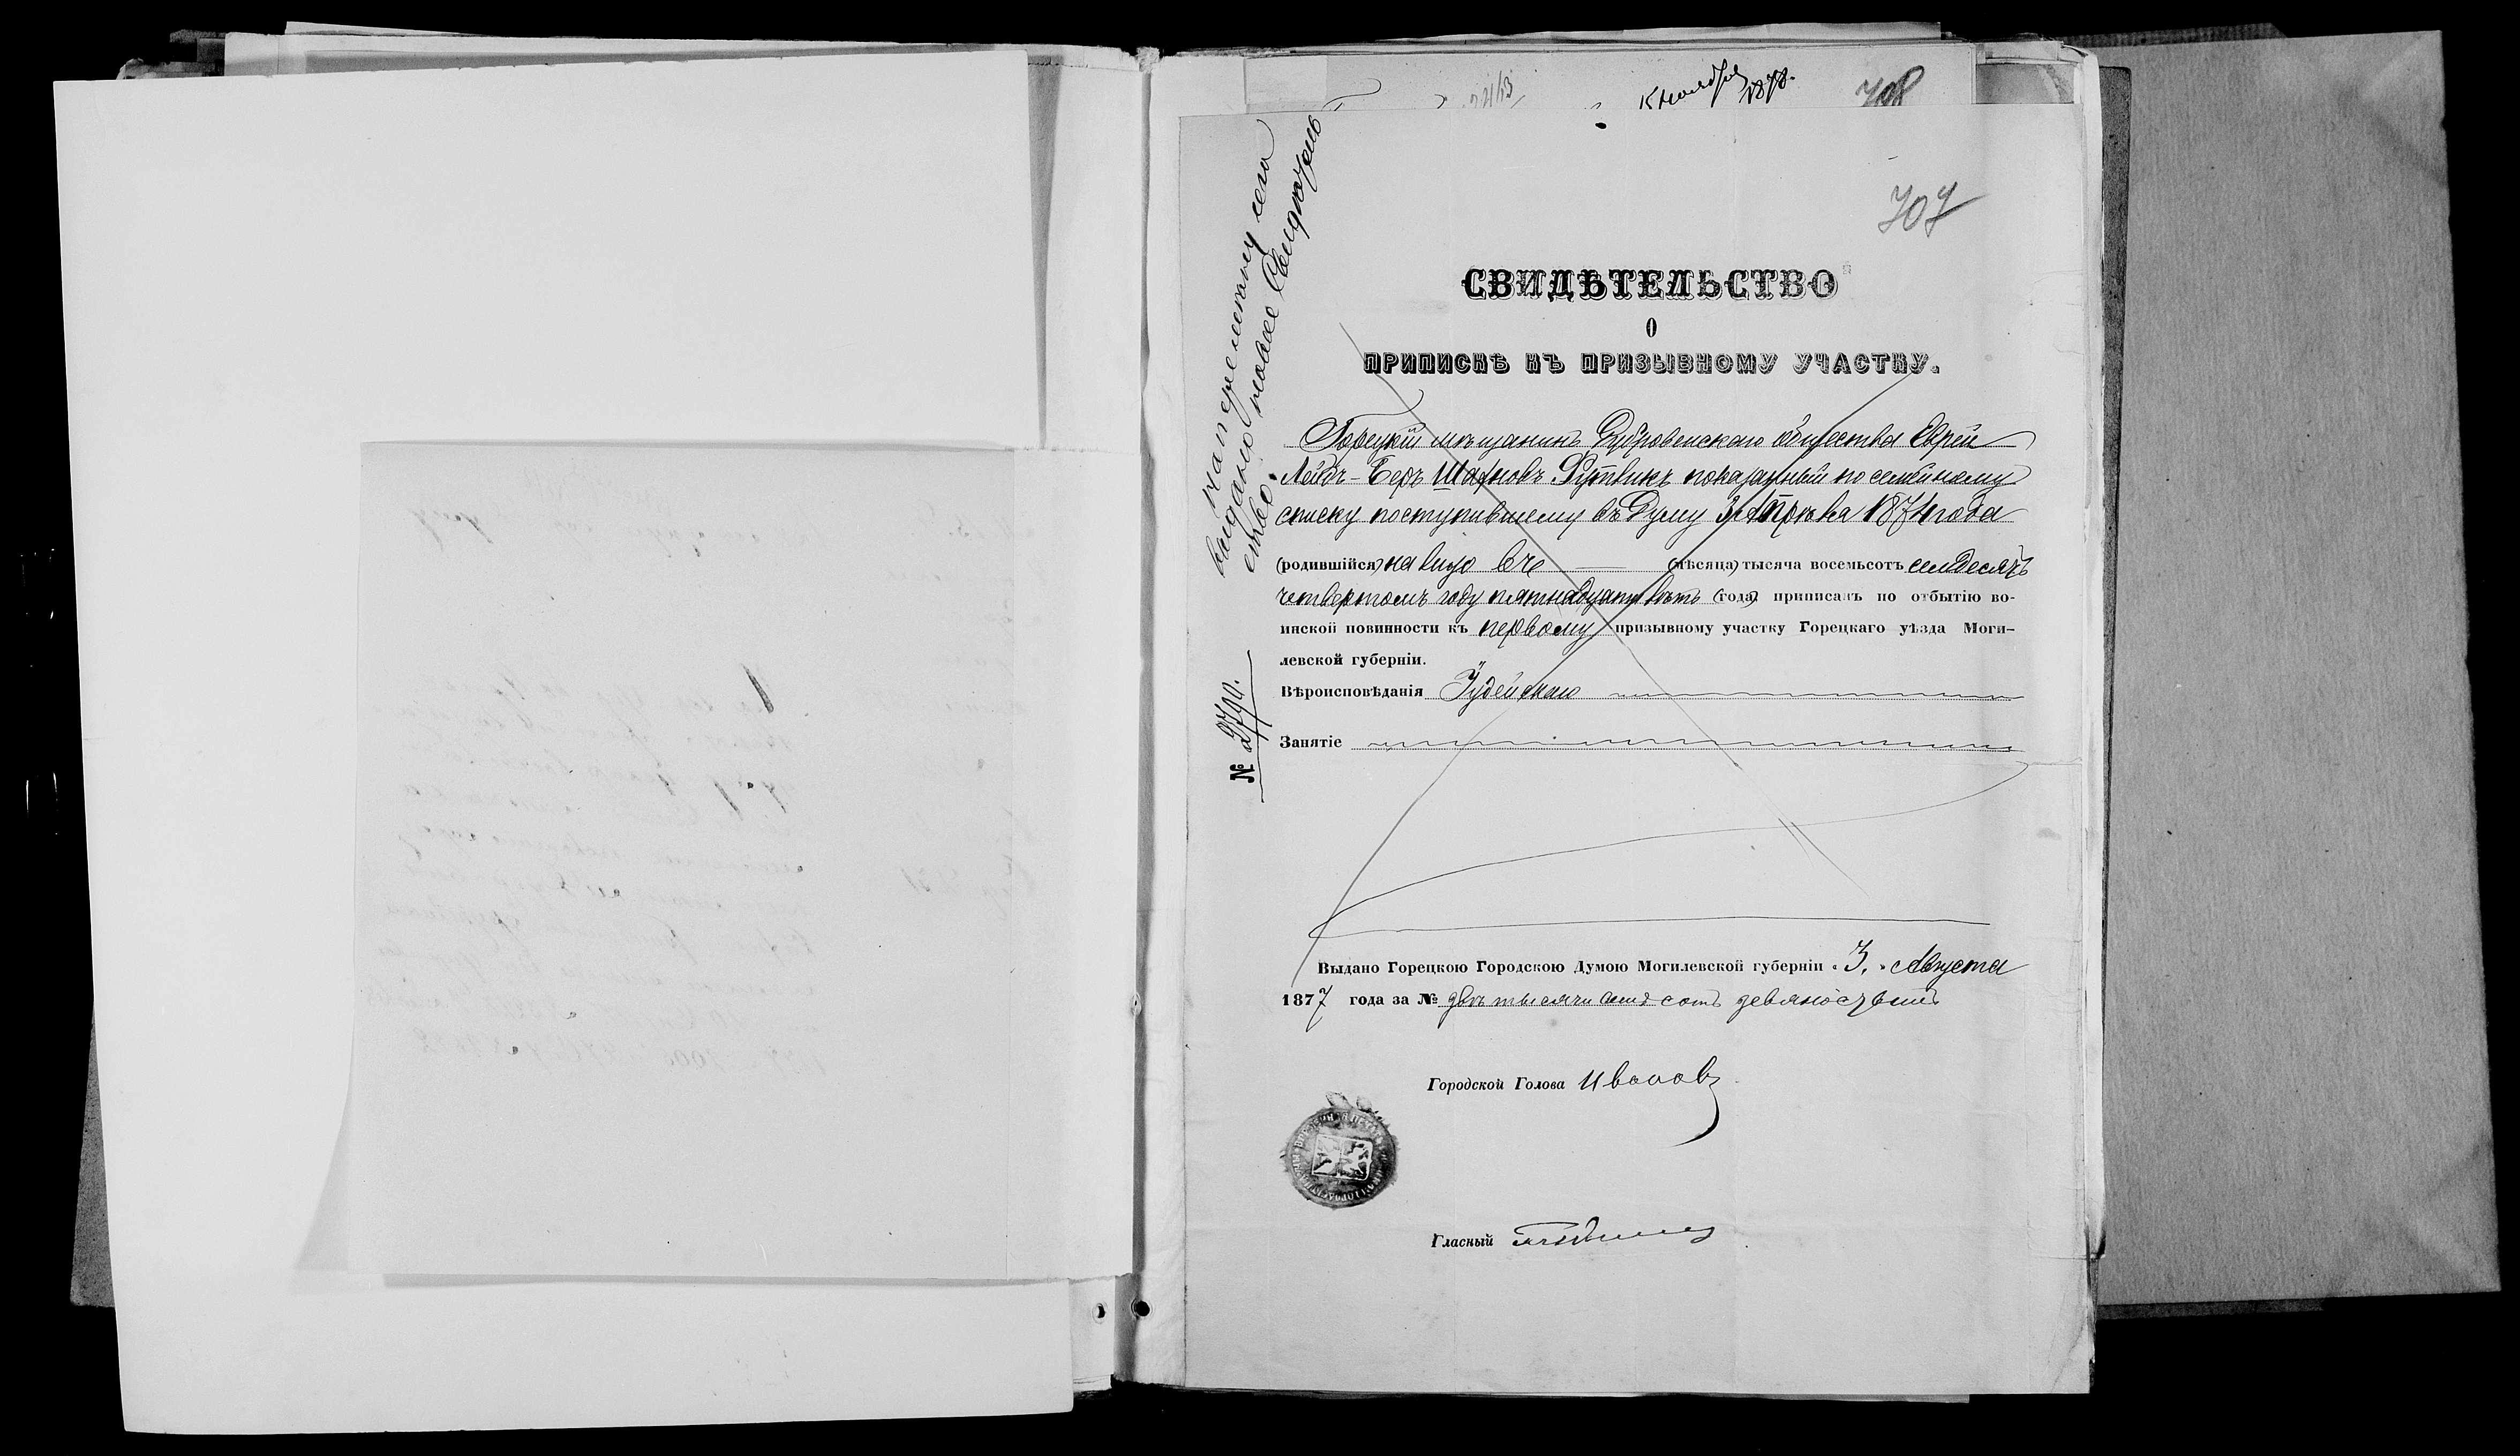 К ноября 1878.
708
707
СВИДѢТЕЛЬСТВО
О
ПРИПИСКѢ КЪ ПРИЗЫВНОМУ УЧАСТКУ.
Горецкій мѣщанинъ Дубровенскаго общества Еврей
Лейба-Беръ Шахновъ показанный по семейному
списку поступившему въ Думу 3 Апрѣля 1874 года
(родившійся) на лицо въ — (мѣсяца) тысяча восемьсотъ семдесятъ
четвертомъ году пятнадцати лѣтъ (года) приписанъ по отбытію во-
инской повинности къ первому призывному участку Горецкаго уѣзда Моги-
левской губерніи.
Вѣроисповѣданія Іудейскаго
Занятіе
Выдано Горецкою Городскою Думою Могилевской губерніи „3„ Августа
1877 года за № двѣ тысячи семь сотъ девяностымъ
Городской Голова Ивановъ
Гласный
№ 2790.
На перемѣну сего
выдано новое Свидѣтель
ство.